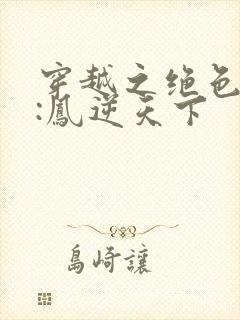 穿越之绝色
:凰逆天下
島崎讓